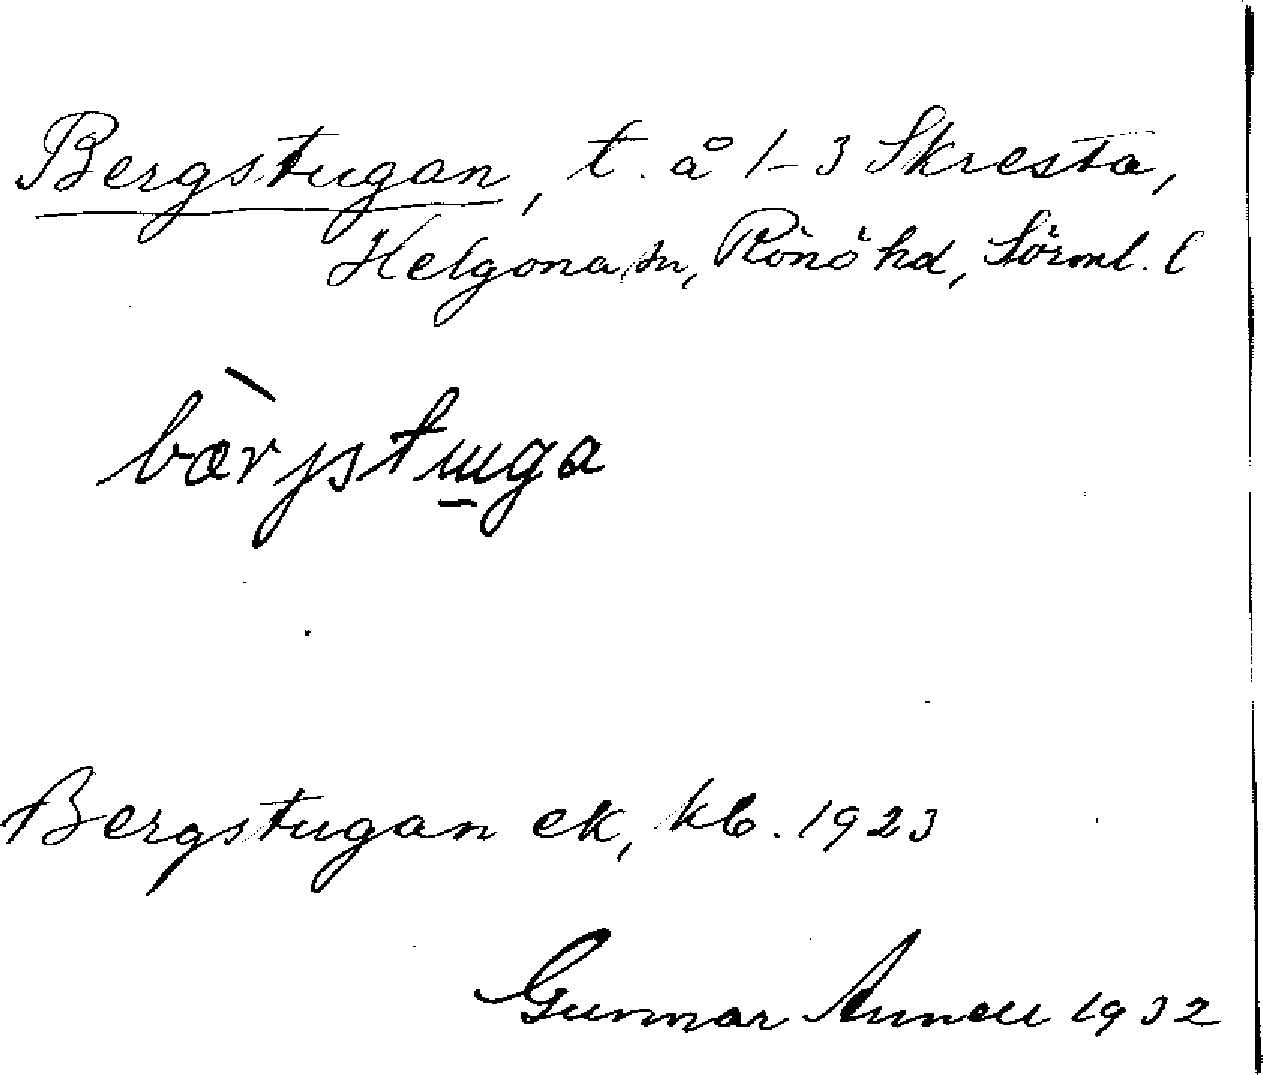 Bergstugan, t. å 1-3 Skresta,
Helgona sn, Rönö hd, Sörml. l
bæ̀rjstu̱ga
Bergstugan ek, kb. 1923
Gunnar Annell 1932